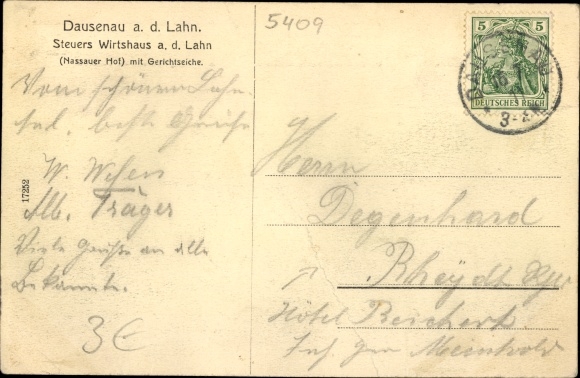 Dausenau a. d. Lahn.
Steuers Wirtshaus a. d. Lahn
(Nassauer Hof) mit Gerichtseiche.
5409
5 5
DEUTSCHES REICH
Vom schönen Lahn
tal, beste Grüße
W.
Alb. Träger
Viele Grüße an alle
Bekannte.
17252
3€
Herrn
Degenhard
Rheydt
Hôtel Reichert
Inh.